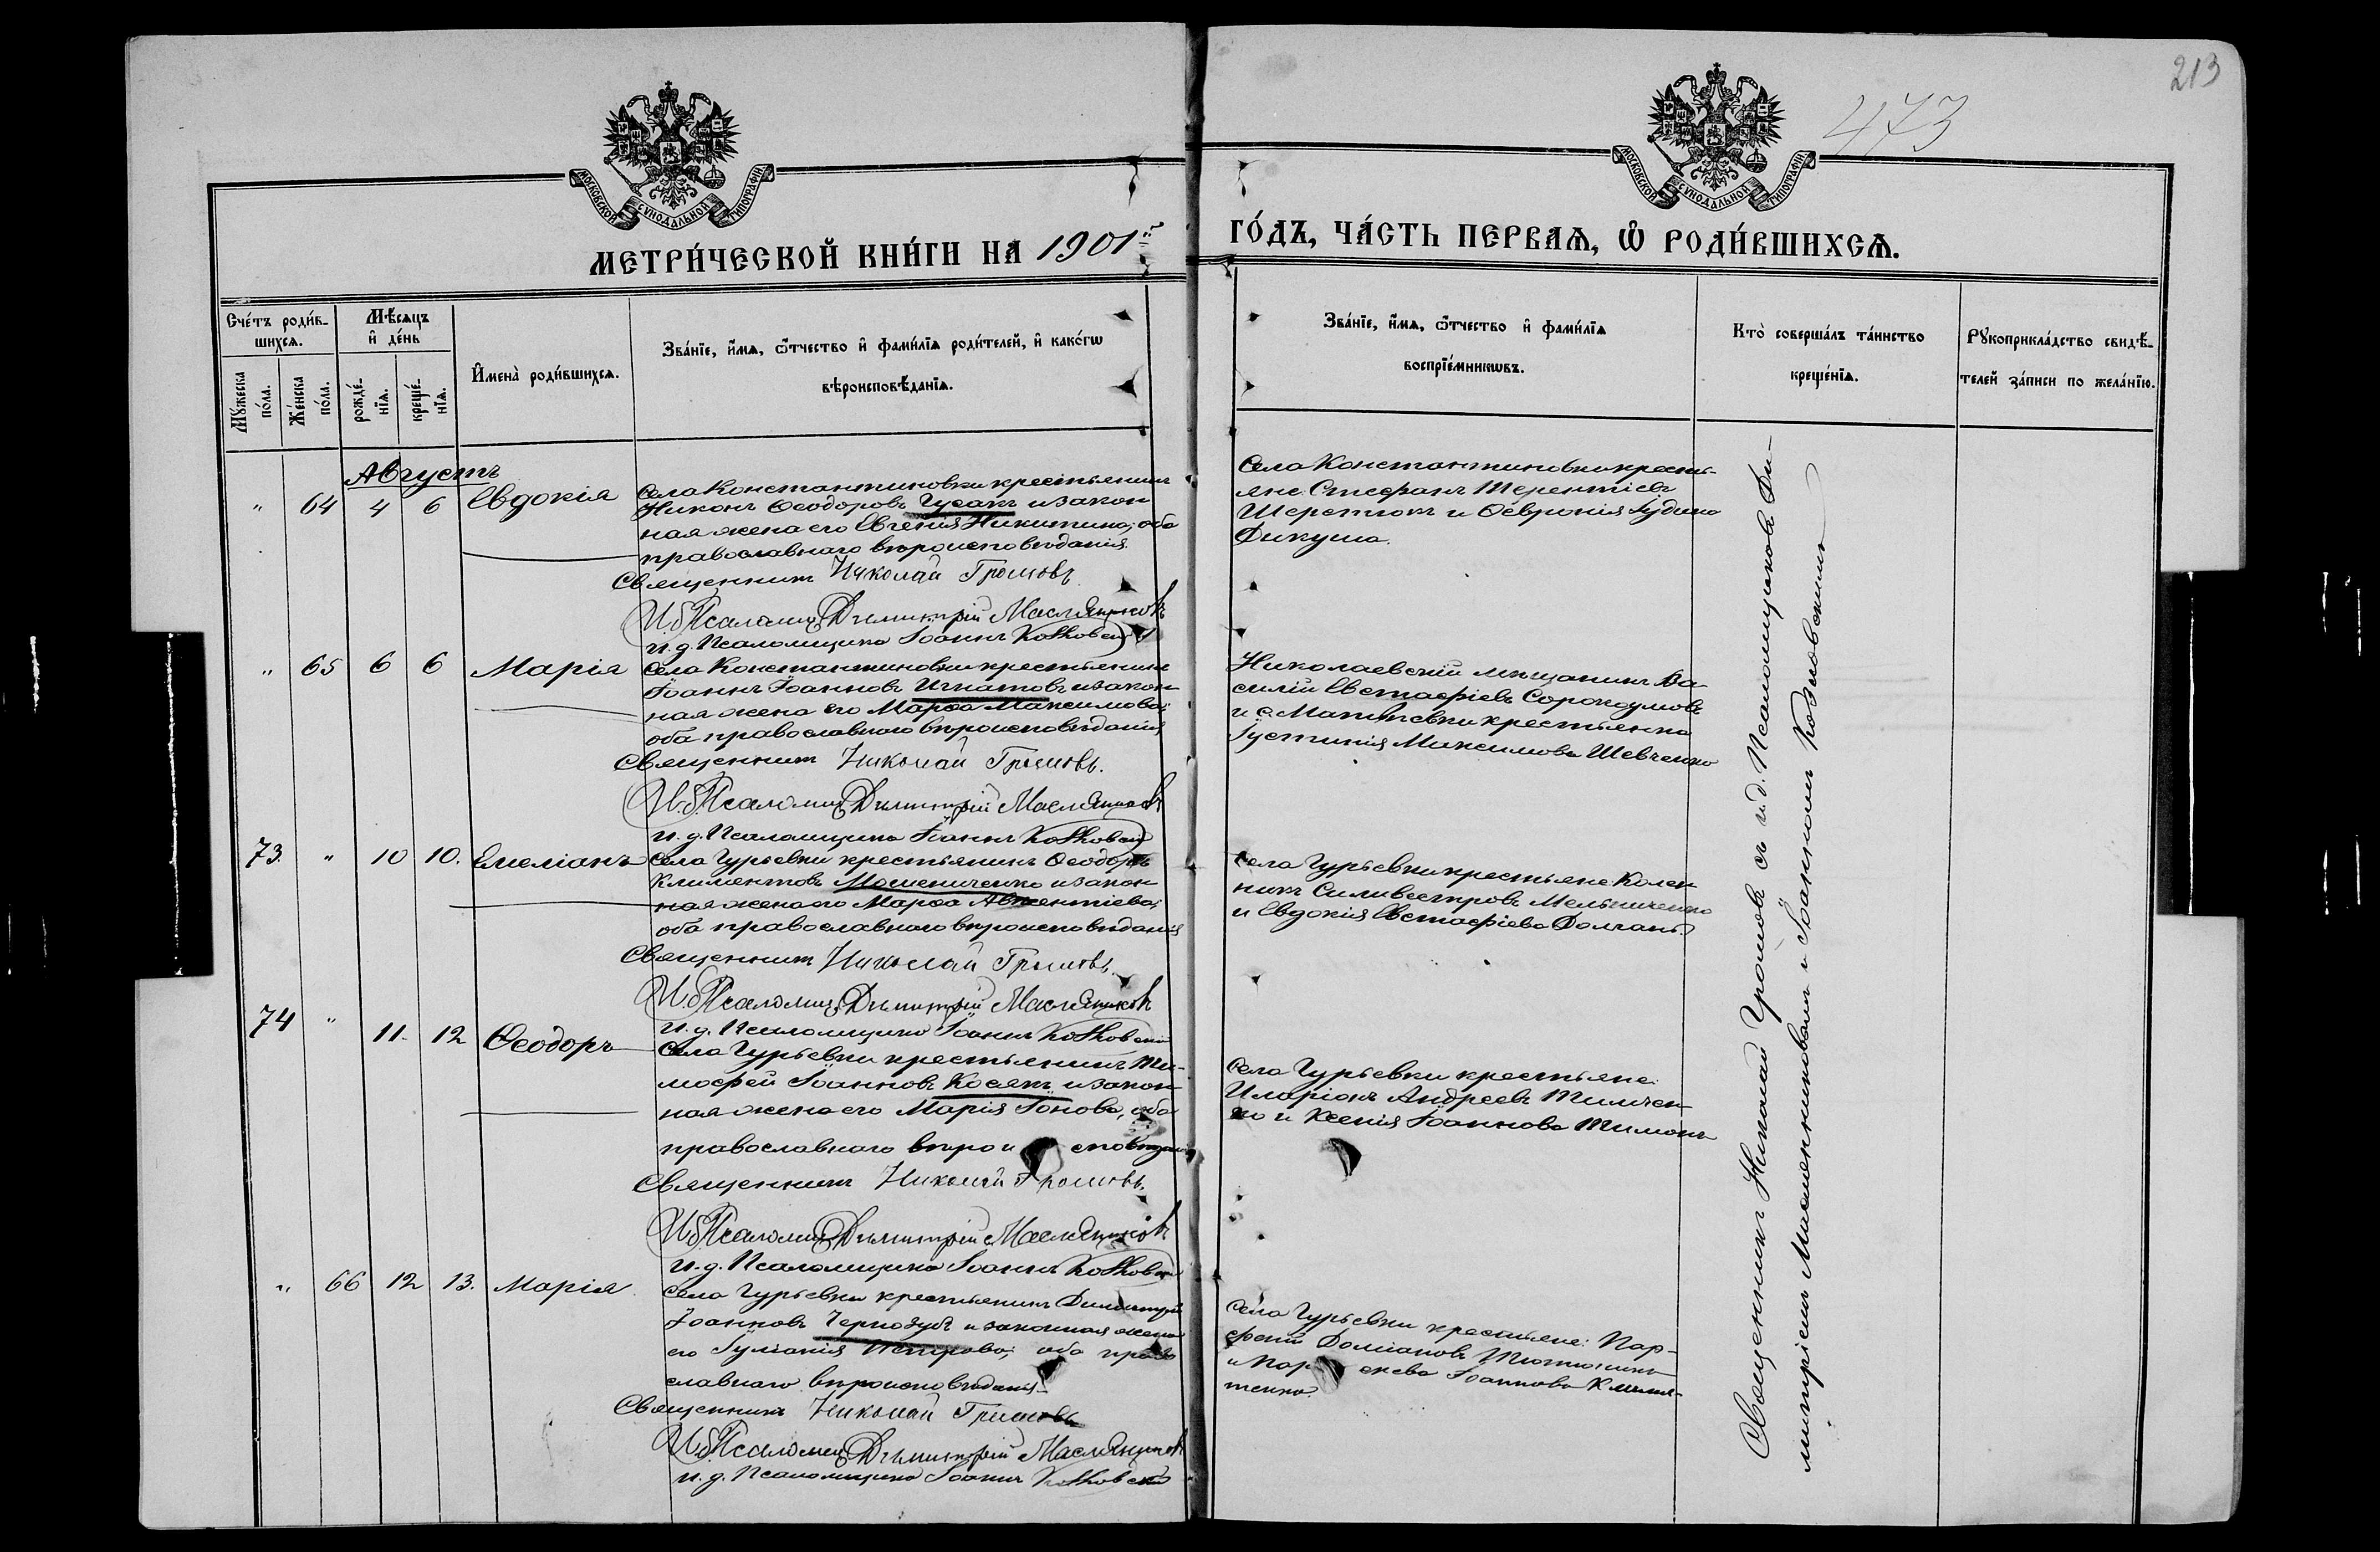 213
473
МОСКОВСКОЙ СѴНОДАЛЬНОЙ ТИПОГРАФІИ
МОСКОВСКОЙ СѴНОДАЛЬНОЙ ТИПОГРАФІИ
МЕТРИ́ЧЕСКОЙ КНИ́ГИ НА 1901й
ГО́ДЪ, ЧА́СТЬ ПЕРВАѦ, Ѡ҆ РОДИ́ВШИХСѦ.
Сче́тъ роди́в-
шихсѧ.
Мꙋ́жеска
по́ла.
Же́нска
по́ла.
Мѣ́сѧцъ
и҆ де́нь
рожде́-
нїѧ.
креще́-
нїѧ.
И҆мена̀ роди́вшихсѧ.
Зва́нїе, и҆́мѧ, ѻ҆́тчество и҆ фами́лїѧ роди́телей, и҆ како́гѡ
вѣроисповѣ́данїѧ.
Зва́нїе, и҆́мѧ, ѻ҆́тчество и҆ фами́лїѧ
воспрїе́мникѡвъ.
Кто̀ соверша́лъ та́инство
креще́нїѧ.
Рꙋкоприкла́дство свидѣ́-
телей за́писи по жела́нїю.
Августъ
" 64 4 6 Евдокія
Села Константиновки крестьянинъ
Никонъ Ѳеодоровъ Гусакъ и закон
ная жена его Евгенія Никитина, оба
православнаго вѣроисповѣданія.
Священникъ Николай Громовъ.
И. д. Псаломщ. Димитрій Маслянниковъ
и. д. Псаломщика Іоаннъ Козловскій
Села Константиновки кресть-
яне: Стефанъ Терентіевъ
Шереметъ и Ѳевронія Іудина
Дикуша.
" 65 6 6 Марія
Села Константиновки крестьянинъ
Іоаннъ Іоанновъ Игнатовъ и закон
ная жена его Марѳа Максимова;
оба православнаго вѣроисповѣданія
Священникъ Николай Громовъ.
И. д. Псаломщ. Димитрій Маслянниковъ
и. д. Псаломщика Іоаннъ Козловскій
Николаевскій мѣщанинъ Ва-
силій Евстафіевъ Сорокоумовъ
и с. Матвѣевки крестьянка
Іустинія Максимова Шевченко
73. " 10 10. Емеліанъ
Села Гурьевки крестьянинъ Ѳеодоръ
Климентовъ Мошениченко и закон
ная жена его Марѳа Авксентіева;
оба православнаго вѣроисповѣданія
Священникъ Николай Громовъ.
И. д. Псаломщ. Димитрій Маслянниковъ
и. д. Псаломщика Іоаннъ Козловскій
Села Гурьевки крестьяне: Колен
никъ Силивестровъ Мельниченко
и Евдокія Евстафіева Долгань.
74 " 11. 12 Ѳеодоръ
Села Гурьевки крестьянинъ Ти-
моѳей Іоанновъ Косякъ и закон
ная жена его Марія Іонова, оба
православнаго вѣроисповѣданія
Священникъ Николай Громовъ.
И. д. Псаломщ. Димитрій Маслянниковъ
и. д. Псаломщика Іоаннъ Козловскій
Села Гурьевки крестьяне:
Иларіонъ Андреевъ Тимчен-
ко и Ксенія Іоаннова
" 66 12 13. Марія
Села Гурьевки крестьянинъ Димитрій
Іоанновъ Чернозубъ и законная жена
его Іуліанія Петрова; оба право
славнаго вѣроисповѣданія.
Священникъ Николай Громовъ
И. д. Псаломщ. Димитрій Маслянниковъ
и. д. Псаломщика Іоаннъ Козловскій
Села Гурьевки крестьяне: Пар-
ѳеній Даміановъ
и Іоаннова
Священникъ Николай Громовъ съ и. д. Псаломщиковъ Ди-
митріемъ Маслянниковымъ и Іоанномъ Козловскимъ